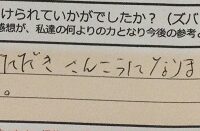 けられていかがでしたか？（ズバ
感想が、私達の何よりの力となり今後の参考と
ただき さんこうになりま
。